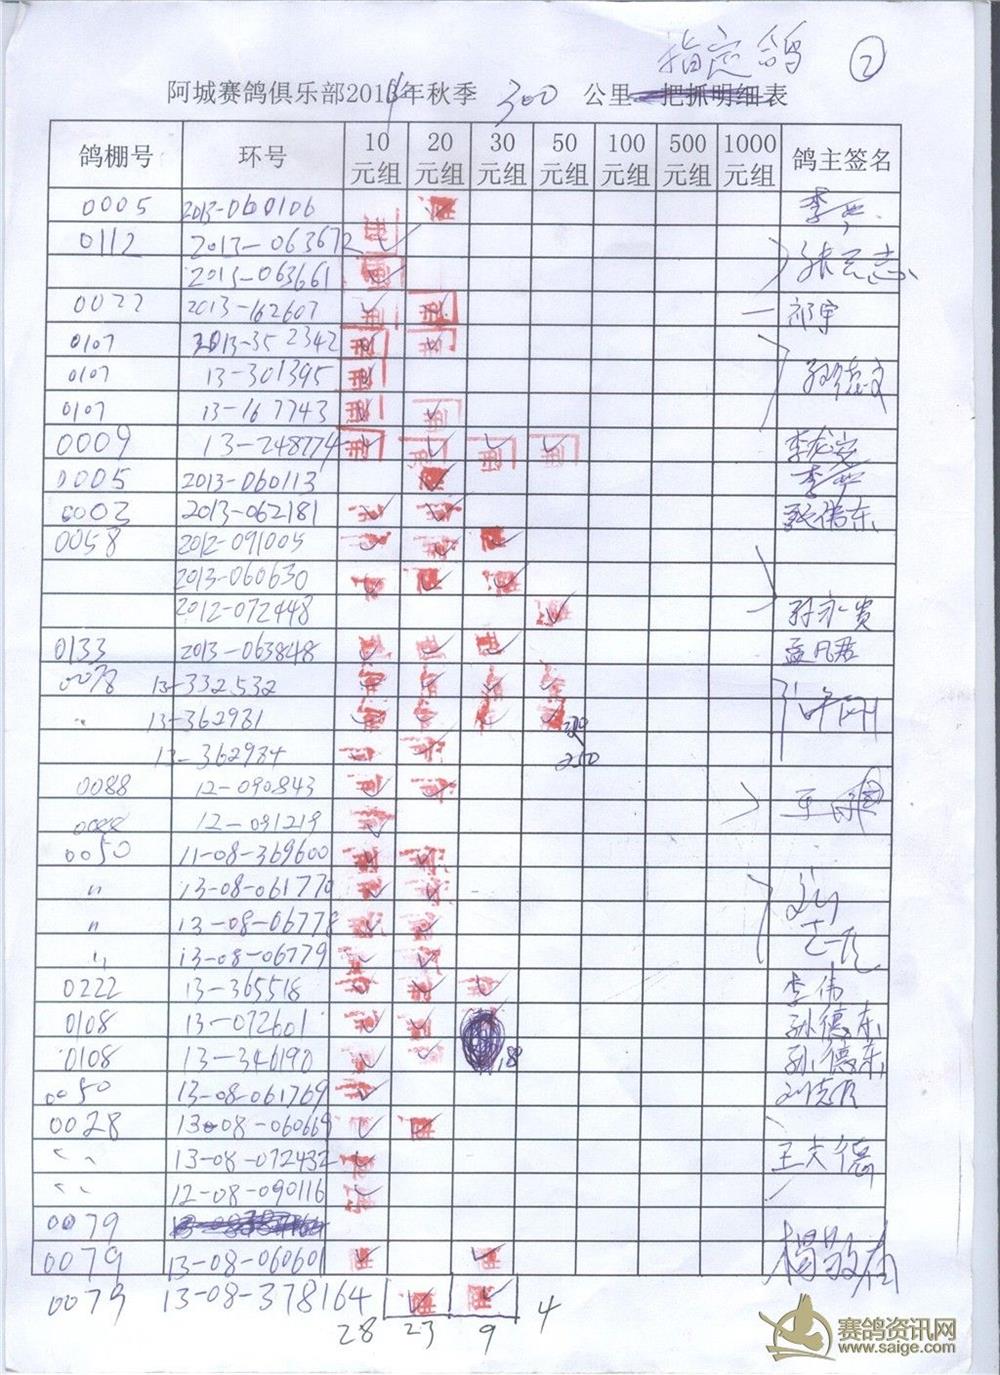 指定鸽 ②
阿城赛鸽俱乐部2014年秋季 300 公里一把抓明细表
鸽棚号 环号 10元组 20元组 30元组 50元组 100元组 500元组 1000元组 鸽主签名
0005 2013-060106 ✓
0112 2013-063672 ✓
2013-063661 ✓ 张云志
0022 2013-162607 ✓ ✓ 祁宇
0107 2013-352342 ✓ ✓
0107 13-301395 ✓ 孙德文
0107 13-167743 ✓ ✓
0009 13-248774 ✓ ✓ ✓ ✓
0005 2013-060113 ✓
0003 2013-062181 ✓ ✓ 张伟东
0058 2012-091005 ✓ ✓ ✓
2013-060630 ✓ ✓ ✓
2012-072448 ✓ 孙永贵
0133 2013-063848 ✓ ✓ ✓ 孟凡君
0078 13-332532 ✓ ✓ ✓ ✓
13-362981 ✓ ✓ ✓ ✓
13-362984 ✓ ✓ 250
0088 12-090843 ✓ ✓
0088 12-091219 ✓
0050 11-08-369600 ✓ ✓
〃 13-08-061770 ✓ ✓
〃 13-08-06778 ✓ ✓ 刘志
〃 13-08-06779 ✓ ✓
0222 13-365518 ✓ ✓ ✓ 李伟
0108 13-072601 ✓ ✓ 孙德东
0108 13-346190 ✓ ✓ 孙德东
0050 13-08-061769 ✓ 刘志
0028 13-08-060669 ✓ ✓
〃 13-08-072432 ✓ 王夫德
〃 12-08-090116 ✓
0079
0079 13-08-060601 ✓ ✓ 杨敬
0079 13-08-378164 ✓ ✓
28 23 9 4
赛鸽资讯网
www.saige.com